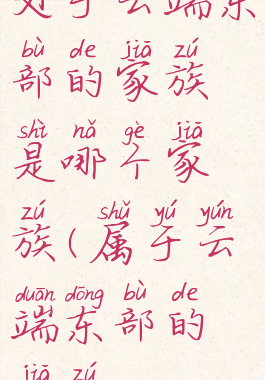 处于云端东
bù de jiā zú
部的家族
shì nǎ gè jiā
是哪个家
zú shǔ yú yún
族(属于云
duān dōng bù de
端东部的
jiā zú